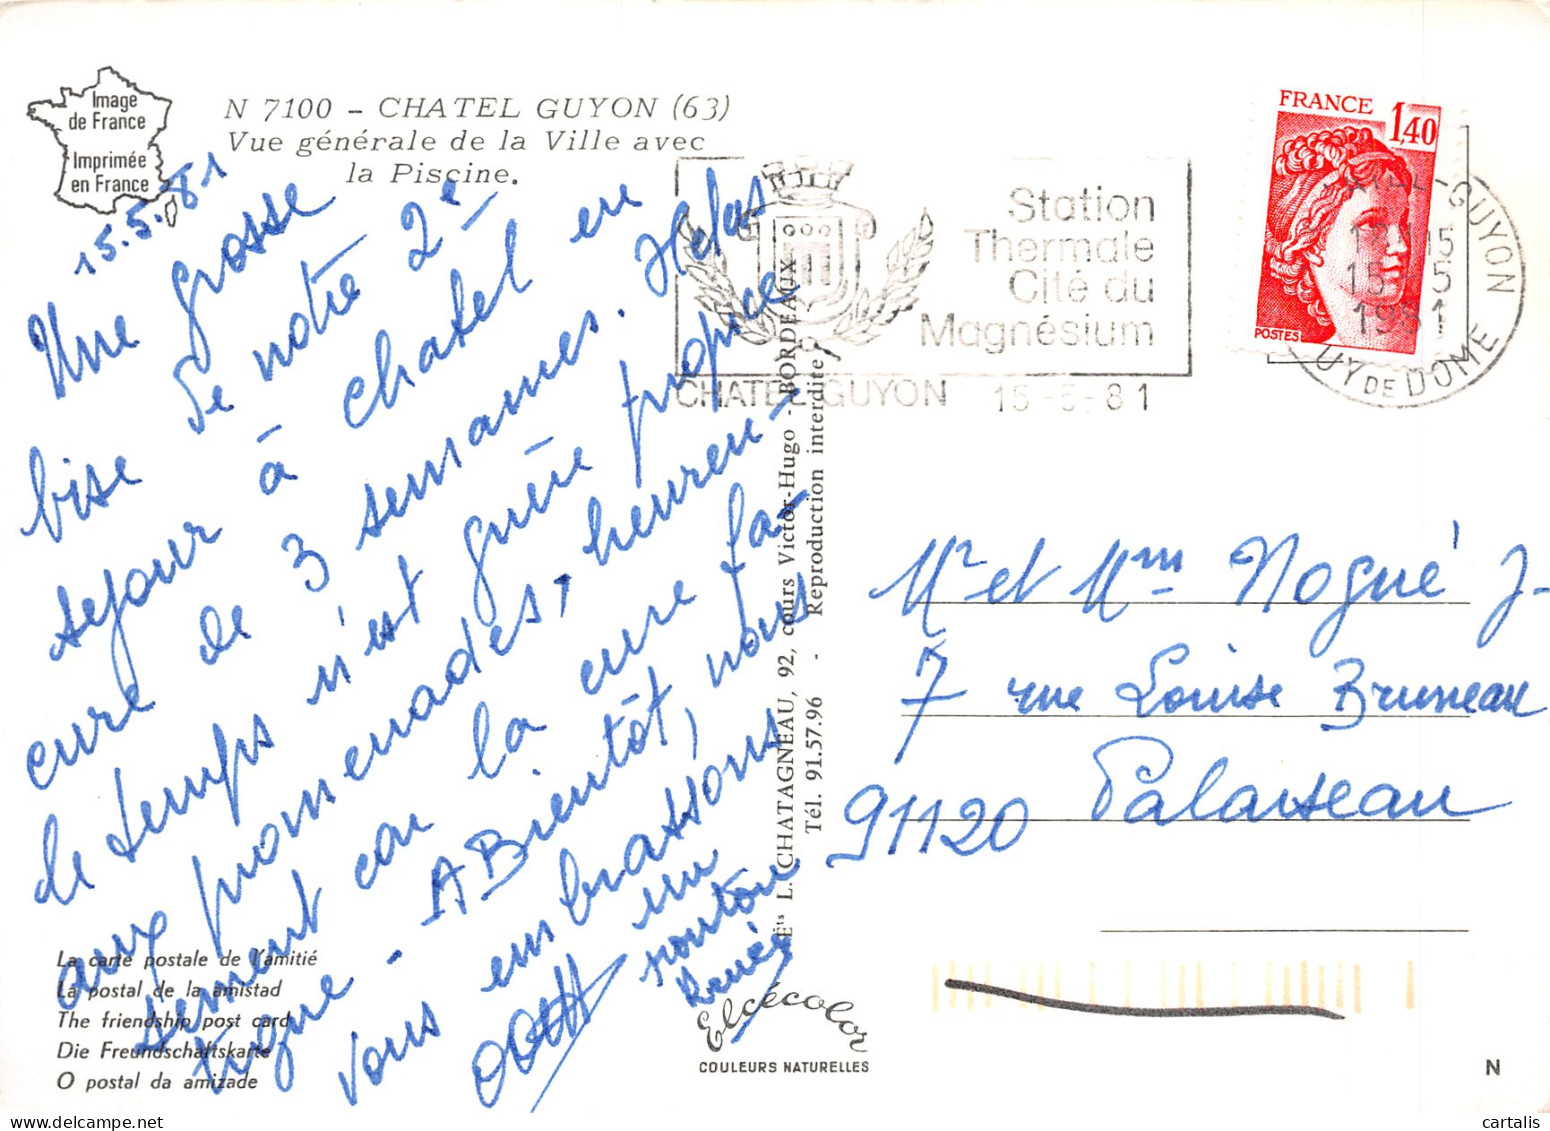 Image
de France
Imprimée
en France
N 7100 - CHATEL GUYON (63)
Vue générale de la Ville avec
la Piscine.
15.5.81
Une grosse
bise de notre 2e
sejour à chatel en
cure de 3 semaines. Helas
le temps n'est guère propice
aux promenades, heureu-
sement car la cure fa-
tigue - A Bientôt, nous
vous embrassons
Renée
FRANCE
1,40
POSTES
Station
Thermale
Cité du
Magnésium
CHATEL GUYON 15-5-81
CHATEL-GUYON
15
15 5
1981
PUY DE DOME
Ets L. CHATAGNEAU, 92, cours Victor-Hugo - BORDEAUX
Tél. 91.57.96 - Reproduction interdite
Mr et Mm Nogué J-
7 rue Louise Bruneau
91120 Palaiseau
La carte postale de l'amitié
La postal de la amistad
The friendship post card
Die Freundschaftskarte
O postal da amizade
Elcécolor
COULEURS NATURELLES
N
cartalis